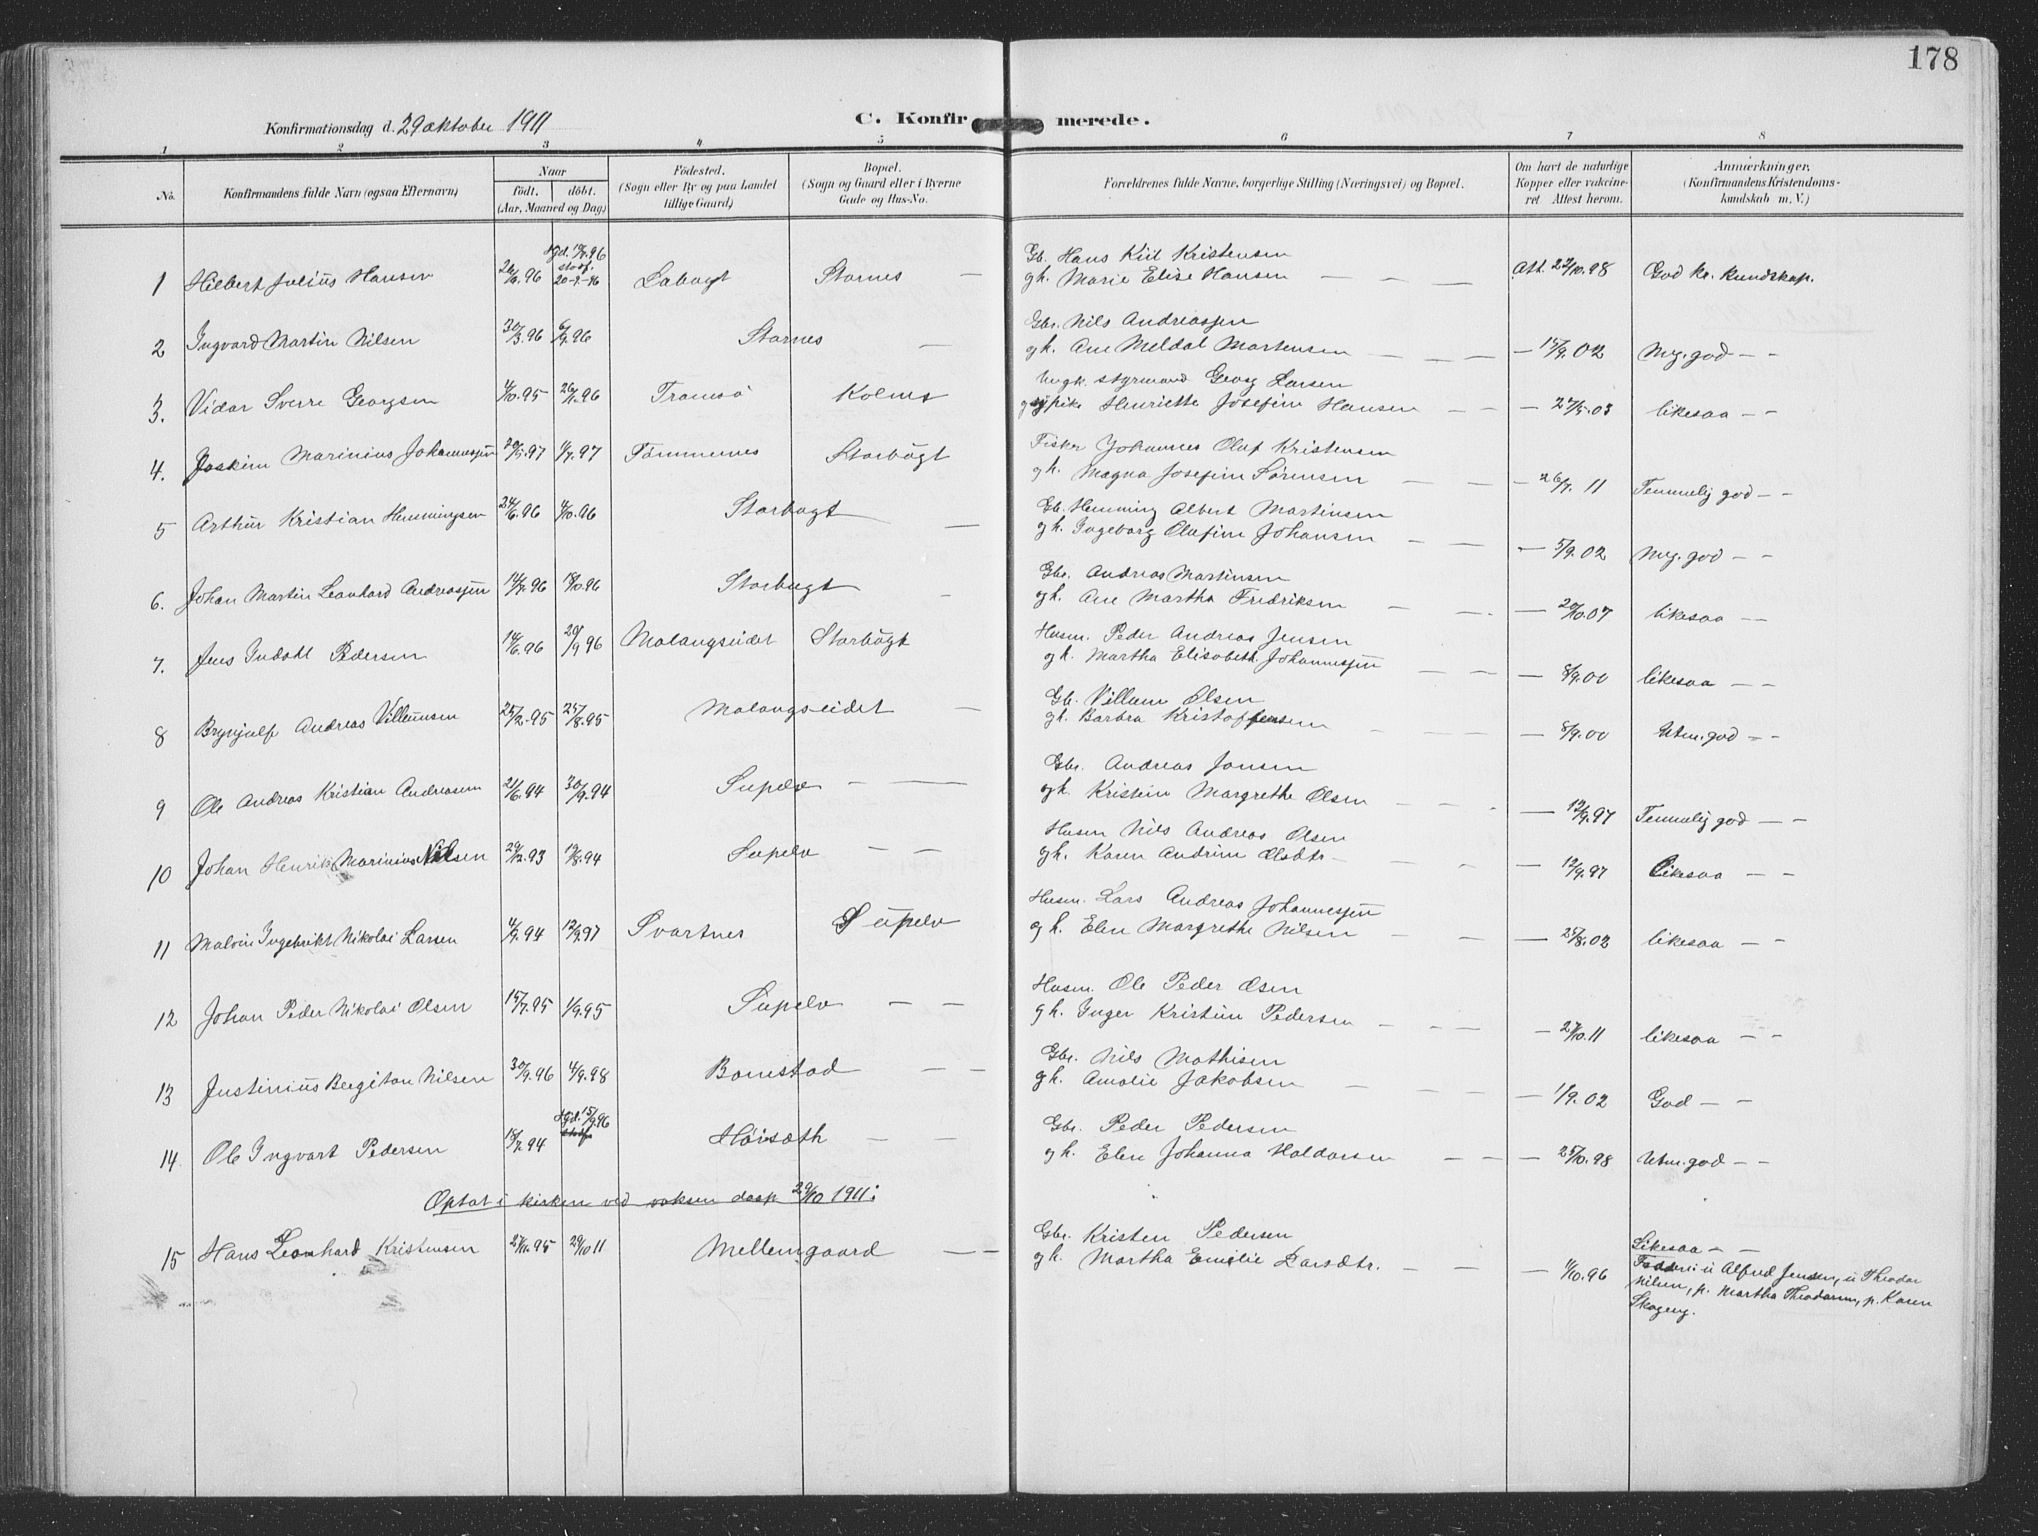 178
Konfirmationsdag d. 29 oktober 1911
C. Konfirmerede.
1 2 3 4 5 6 7 8
No.
Konfirmandens fulde Navn (ogsaa Efternavn)
Naar
født. döbt.
(Aar, Maaned og Dag)
Födested.
(Sogn eller By og paa Landet
tillige Gaard)
Bopæl.
(Sogn og Gaard eller i Byerne
Gade og Hus-No.
Forældrenes fulde Navne, borgerlige Stilling (Næringsvei) og Bopæl.
Om havt de naturlige
Kopper eller vakcine-
ret Attest herom.
Anmærkninger.
(Konfirmandens Kristendoms-
kundskab m. V.)
1 Hilbert Julius Hansen 96 20-9-96 Stornes —
Gb. Hans Kiil Kristensen
gh. Marie Elise Hansen — — — Att. 22/10.98 God kr. kundskap.
2 Ingvard Martin Nilsen 30/3.96 6/9.96 Stornes —
Gbr. Nils Andreassen
gh. Ane Meldal Martensen — — — — 15/9.02 Mg. god — -
3. Vidar Sverre Georgsen 4/10.95 26/1.96 Tromsö Kolnes
Ungk. styrmand Georg Larsen
og pike Henriette Josefine Hansen — — — 27/5.03 likesaa — -
4. Joakim Marinius Johannessen 20/5.97 11/7.97 Tömmernes Storbögt
Fisker Johannes Olaf Kristensen
gh. Magna Josefine Sörensen — — — 26/7.11 Temmelig god — -
5 Arthur Kristian Henningsen 24/6.96 4/10.96 Storbugt —
Gb. Henning Albert Martinsen
gh. Ingeborg Olufine Johansen — — — 5/9.02 Mg. god — -
6. Johan Martin Leonhard Andreassen 14/7.96 18/10.96 Storbugt —
Gbr. Andreas Martinsen
gh. Ane Martha Fredriksen — — — 20/10.07 likesaa — -
7. Jens Indahl Pedersen 14/6.96 20/9.96 Malangseidet Storbögt
Husm. Peder Andreas Jensen
gh. Martha Elisabeth Johannessen — — — 8/9.00 likesaa — -
8 Brynjulf Andreas Villumsen 25/2.95 25/8.95 Malangseidet —
Gb. Villum Olsen
gh. Barbra Kristoffersen — — — 8/9.00 Utm. god — -
9 Ole Andreas Kristian Andreasen 21/6.94 30/9.94 Supelv — —
Gbr. Andreas Jonsen
gh. Kristine Margrethe Olsen — — — 12/9.97 Temmelig god — -
10 Johan Henrik Marinius Nilsen 29/12.93 19/8.94 Supelv — —
Husm Nils Andreas Olsen
gh. Karen Andrine Olsdtr — — — 12/9.97 likesaa — -
11 Malvin Ingebrikt Nikolai Larsen 4/9.94 12/9.97 Svartnes Supelv
Husm. Lars Andreas Johannessen
gh. Elen Margrethe Nilsen — — — 25/8.02 likesaa — -
12 Johan Peder Nikolai Olsen 15/7.95 1/9.95 Supelv — —
Husm. Ole Peder Olsen
gh. Inger Kristine Pedersen — — — 27/10.11 likesaa — -
13 Justinius Bergiton Nilsen 30/9.96 4/9.98 Bomstad — —
Gbr. Nils Mathisen
gh. Amalie Jakobsen — — — 1/9.02 God — -
14. Ole Ingvart Pedersen 15/7.94 15/9.96 Höisæth — —
Gbr. Peder Pedersen
gh. Elen Johanna Haldorsen — — — 25/10.98 Utm. god — -
Optat i kirken ved voksen daap 29/10 1911:
15 Hans Leonhard Kristensen 95 29/10 11 Mellemgaard — —
Gbr. Kristen Pedersen
gh. Martha Emelie Larsdtr. — — — 11/10.96 Likesaa — -
Faddere: u Alfred Jensen, u Theodor
Nilsen, p. Martha Theodorsen, p. Karen
Skogeng.